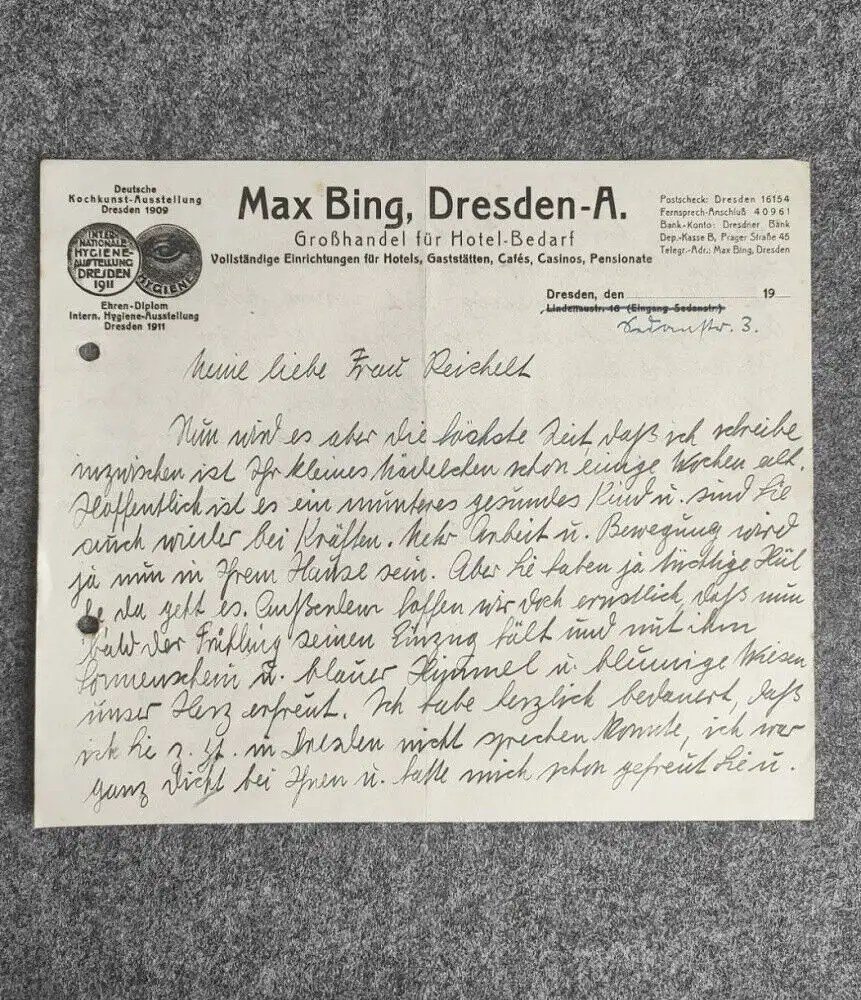 Deutsche
Kochkunst-Ausstellung
Dresden 1909
INTER-
NATIONALE
HYGIENE-
AUSSTELLUNG
DRESDEN
1911
HYGIENE
Ehren-Diplom
Intern. Hygiene-Ausstellung
Dresden 1911
Max Bing, Dresden-A.
Großhandel für Hotel-Bedarf
Vollständige Einrichtungen für Hotels, Gaststätten, Cafés, Casinos, Pensionate
Postscheck: Dresden 16154
Fernsprech-Anschluß 40961
Bank-Konto: Dresdner Bank
Dep.-Kasse B, Prager Straße 45
Telegr.-Adr.: Max Bing, Dresden
Dresden, den 19
Lindenaustr. 18 (Eingang Sedanstr.)
Sedanstr. 3.
Meine liebe Frau Reichelt
Nun wird es aber die höchste Zeit, daß ich schreibe
inzwischen ist Ihr kleines Mädelchen schon einige Wochen alt.
Hoffentlich ist es ein munteres gesundes Kind u. sind Sie
auch wieder bei Kräften. Mehr Arbeit u. Bewegung wird
ja nun in Ihrem Hause sein. Aber Sie haben ja tüchtige Hül
fe da geht es. Außerdem hoffen wir doch ernstlich, daß nun
bald der Frühling seinen Einzug hält und mit ihm
Sonnenschein u. blauer Himmel u. blumige Wiesen
unser Herz erfreut. Ich habe herzlich bedauert, daß
ich Sie z. Zt. in Dresden nicht sprechen konnte, ich war
ganz dicht bei Ihnen u. hatte mich schon gefreut Sie u.